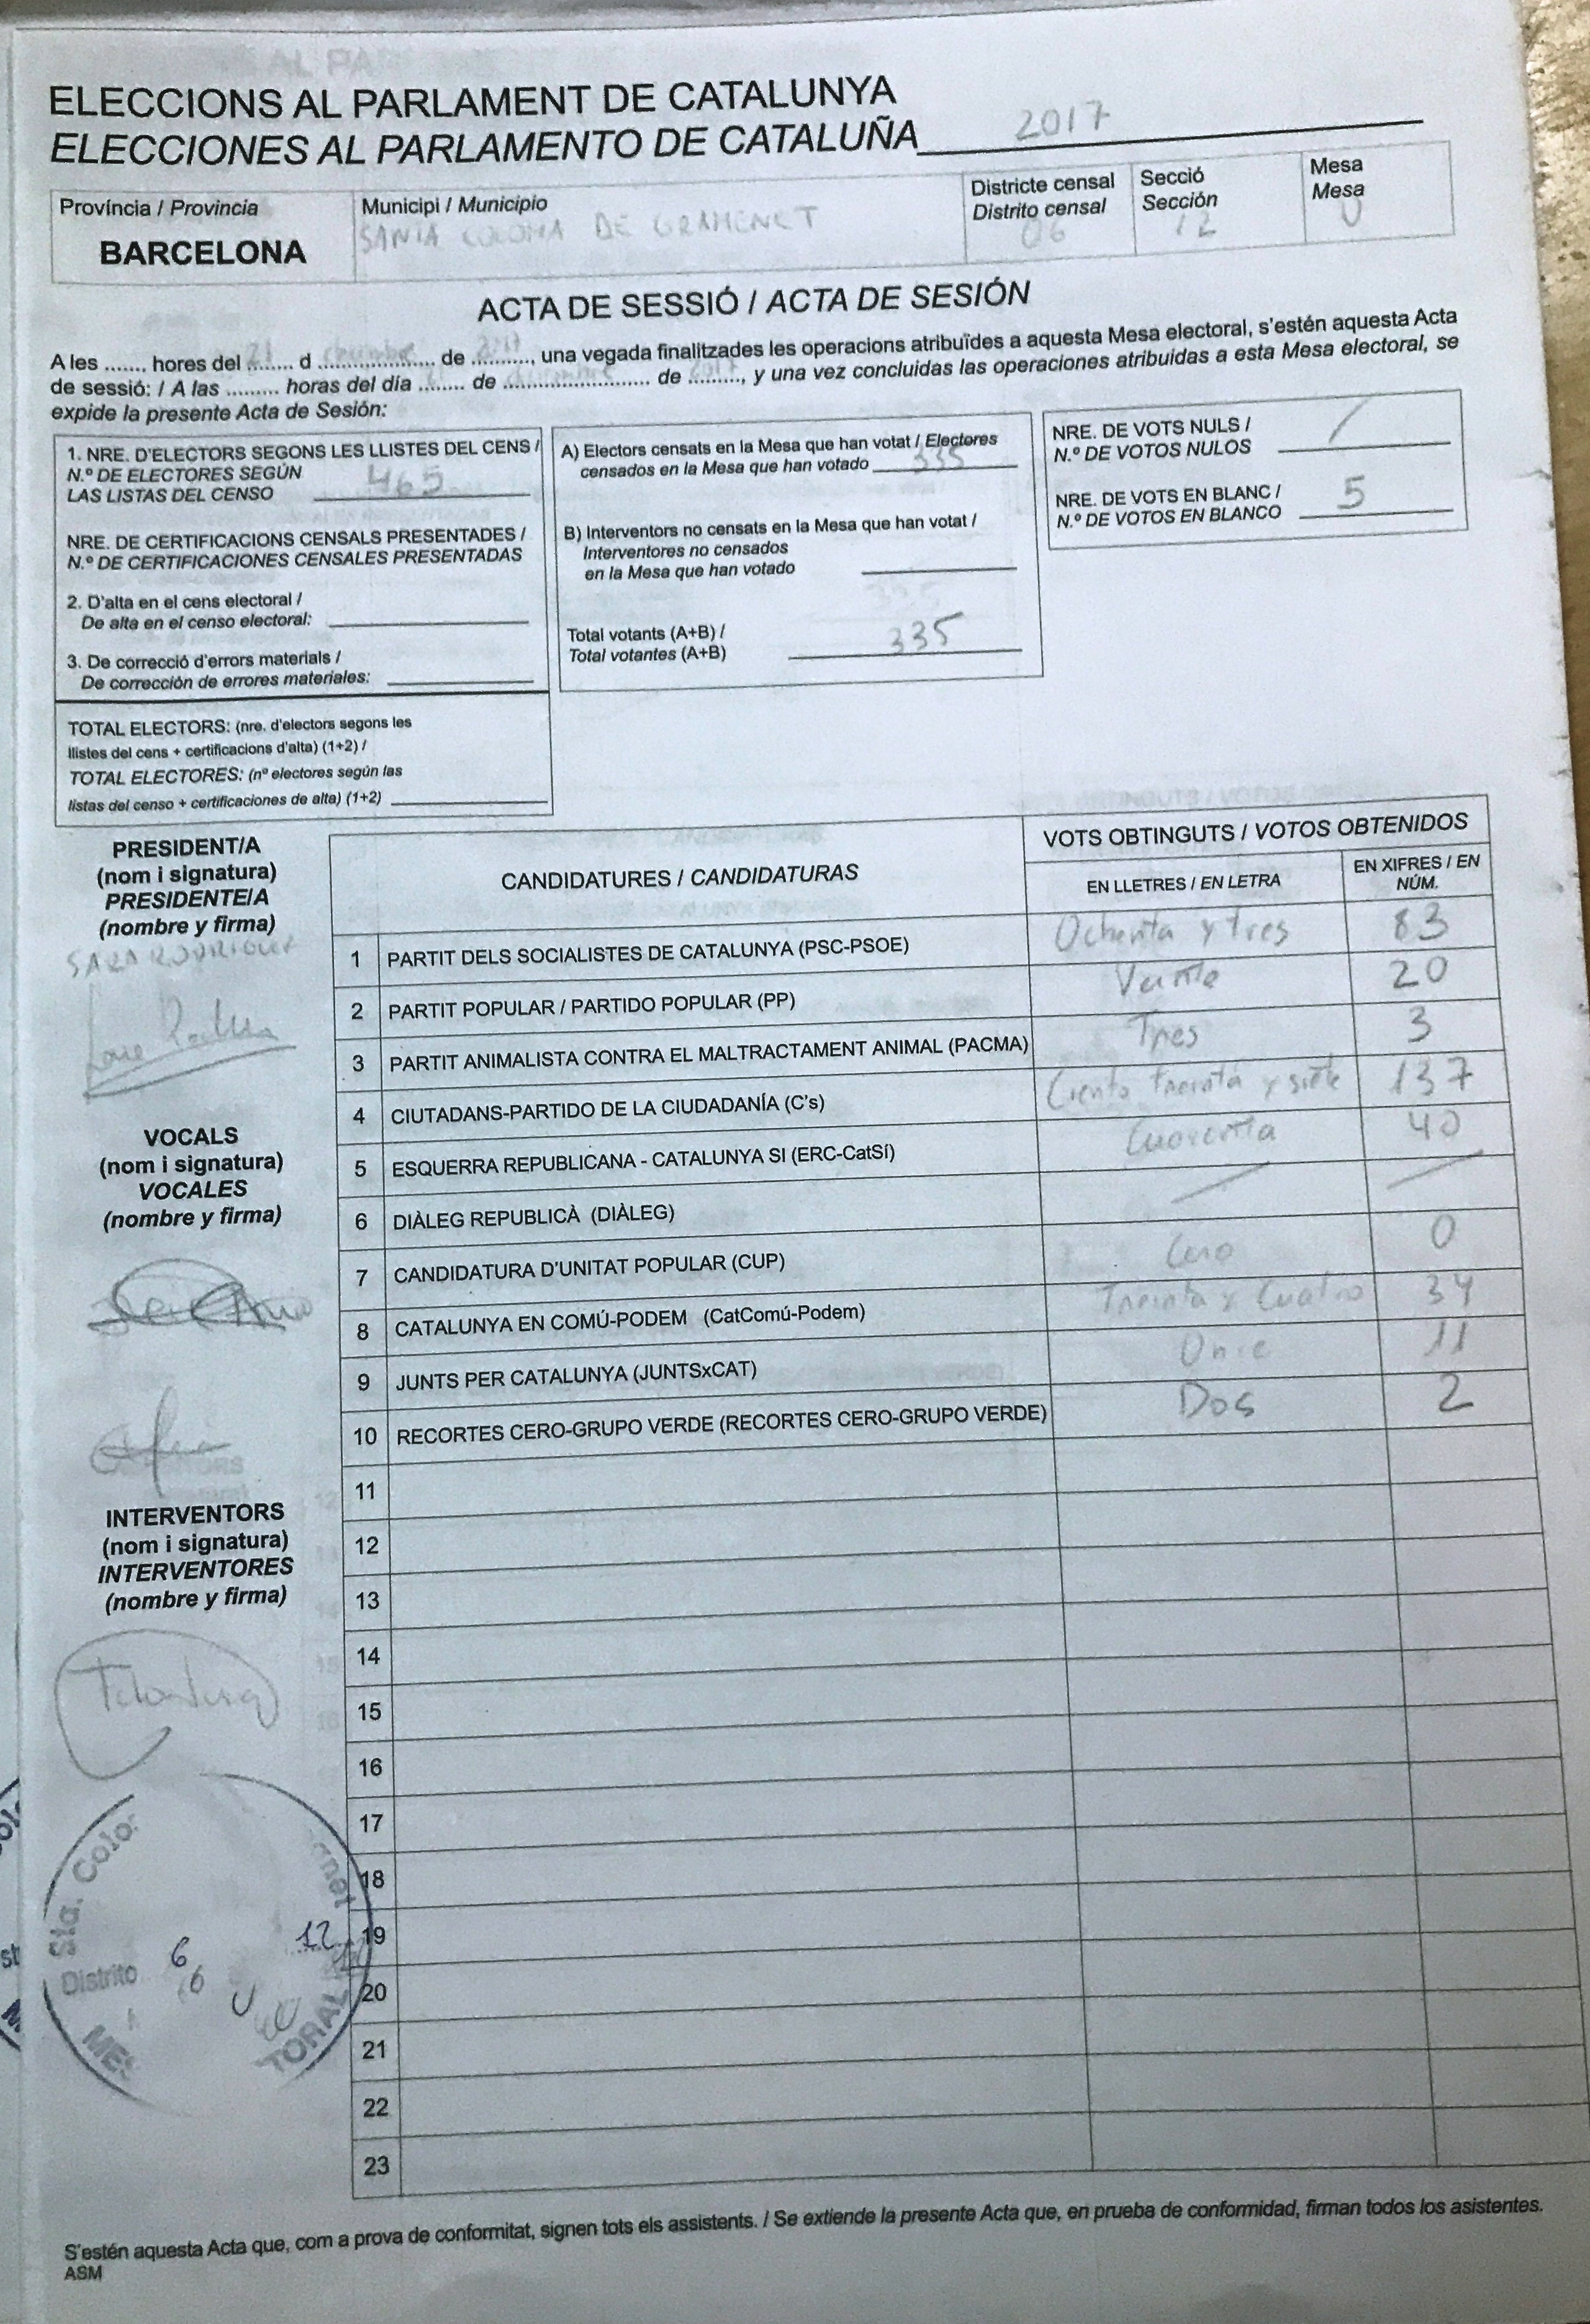 ELECCIONS AL PARLAMENT DE CATALUNYA
ELECCIONES AL PARLAMENTO DE CATALUÑA 2017
Província / Provincia
BARCELONA
Municipi / Municipio
SANTA COLOMA DE GRAMENET
Districte censal
Distrito censal
06
Secció
Sección
12
Mesa
Mesa
U
ACTA DE SESSIÓ / ACTA DE SESIÓN
A les ....... hores del 21 d diciembre de 2017, una vegada finalitzades les operacions atribuïdes a aquesta Mesa electoral, s'estén aquesta Acta
de sessió: / A las ......... horas del día ........ de diciembre de 2017, y una vez concluidas las operaciones atribuidas a esta Mesa electoral, se
expide la presente Acta de Sesión:
1. NRE. D'ELECTORS SEGONS LES LLISTES DEL CENS /
N.º DE ELECTORES SEGÚN
LAS LISTAS DEL CENSO 465
NRE. DE CERTIFICACIONS CENSALS PRESENTADES /
N.º DE CERTIFICACIONES CENSALES PRESENTADAS
2. D'alta en el cens electoral /
De alta en el censo electoral:
3. De correcció d'errors materials /
De corrección de errores materiales:
TOTAL ELECTORS: (nre. d'electors segons les
llistes del cens + certificacions d'alta) (1+2) /
TOTAL ELECTORES: (nº electores según las
listas del censo + certificaciones de alta) (1+2)
A) Electors censats en la Mesa que han votat / Electores
censados en la Mesa que han votado 335
B) Interventors no censats en la Mesa que han votat /
Interventores no censados
en la Mesa que han votado
Total votants (A+B) /
Total votantes (A+B) 335
NRE. DE VOTS NULS /
N.º DE VOTOS NULOS /
NRE. DE VOTS EN BLANC /
N.º DE VOTOS EN BLANCO 5
PRESIDENT/A
(nom i signatura)
PRESIDENTE/A
(nombre y firma)
SARA RODRIGUEZ
VOCALS
(nom i signatura)
VOCALES
(nombre y firma)
INTERVENTORS
(nom i signatura)
INTERVENTORES
(nombre y firma)
CANDIDATURES / CANDIDATURAS
VOTS OBTINGUTS / VOTOS OBTENIDOS
EN LLETRES / EN LETRA
EN XIFRES / EN
NÚM.
1 PARTIT DELS SOCIALISTES DE CATALUNYA (PSC-PSOE) Ochenta y tres 83
2 PARTIT POPULAR / PARTIDO POPULAR (PP) Veinte 20
3 PARTIT ANIMALISTA CONTRA EL MALTRACTAMENT ANIMAL (PACMA) Tres 3
4 CIUTADANS-PARTIDO DE LA CIUDADANÍA (C's) Ciento treinta y siete 137
5 ESQUERRA REPUBLICANA - CATALUNYA SI (ERC-CatSí) Cuarenta 40
6 DIÀLEG REPUBLICÀ (DIÀLEG) / /
7 CANDIDATURA D'UNITAT POPULAR (CUP) Cero 0
8 CATALUNYA EN COMÚ-PODEM (CatComú-Podem) Treinta y Cuatro 34
9 JUNTS PER CATALUNYA (JUNTSxCAT) Once 11
10 RECORTES CERO-GRUPO VERDE (RECORTES CERO-GRUPO VERDE) Dos 2
11
12
13
14
15
16
17
18
19
20
21
22
23
Sta. Colo
Distrito 6 12
6 U
TORAL
S'estén aquesta Acta que, com a prova de conformitat, signen tots els assistents. / Se extiende la presente Acta que, en prueba de conformidad, firman todos los asistentes.
ASM